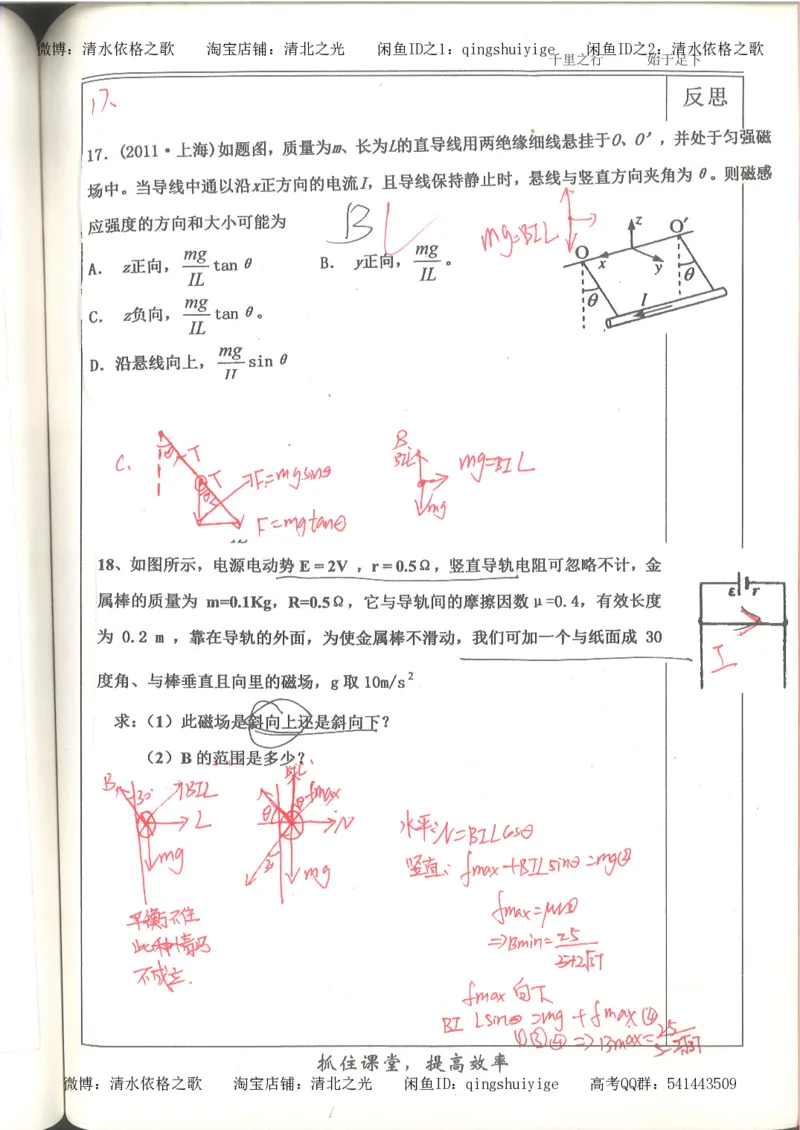 微博：清水依格之歌 淘宝店铺：清北之光 闲鱼ID之1：qingshuiyige 闲鱼ID之2：清水依格之歌
千里之行 始于足下
17、
反思
17．(2011·上海)如题图，质量为m、长为L的直导线用两绝缘细线悬挂于O、O′，并处于匀强磁
场中。当导线中通以沿x正方向的电流I，且导线保持静止时，悬线与竖直方向夹角为θ。则磁感
应强度的方向和大小可能为
B
mg=BIL
A． z正向，mg/IL tanθ B． y正向，mg/IL。
C． z负向，mg/IL tanθ。
D．沿悬线向上，mg/IL sinθ
z
O′
O
x
y
θ
θ
I
C.
T
T
θ
F=mgsinθ
F=mgtanθ
B
BIL
mg=BIL
mg
18、如图所示，电源电动势 E = 2V ，r = 0.5Ω，竖直导轨电阻可忽略不计，金
属棒的质量为 m=0.1Kg，R=0.5Ω，它与导轨间的摩擦因数μ=0.4，有效长度
为 0.2 m ，靠在导轨的外面，为使金属棒不滑动，我们可加一个与纸面成 30
度角、与棒垂直且向里的磁场，g 取 10m/s²
ε r
I
求：（1）此磁场是斜向上还是斜向下？
（2）B 的范围是多少？
B 30° BIL
L
mg
BIL
fmax
θ
N
mg
平衡不住
此种情况
不成立.
水平：N=BILcosθ
竖直：fmax+BILsinθ=mg②
fmax=μN③
⇒Bmin=25/
fmax 向下
BILsinθ=mg+fmax④
①③④⇒Bmax=25/
抓住课堂，提高效率
微博：清水依格之歌 淘宝店铺：清北之光 闲鱼ID：qingshuiyige 高考QQ群：541443509